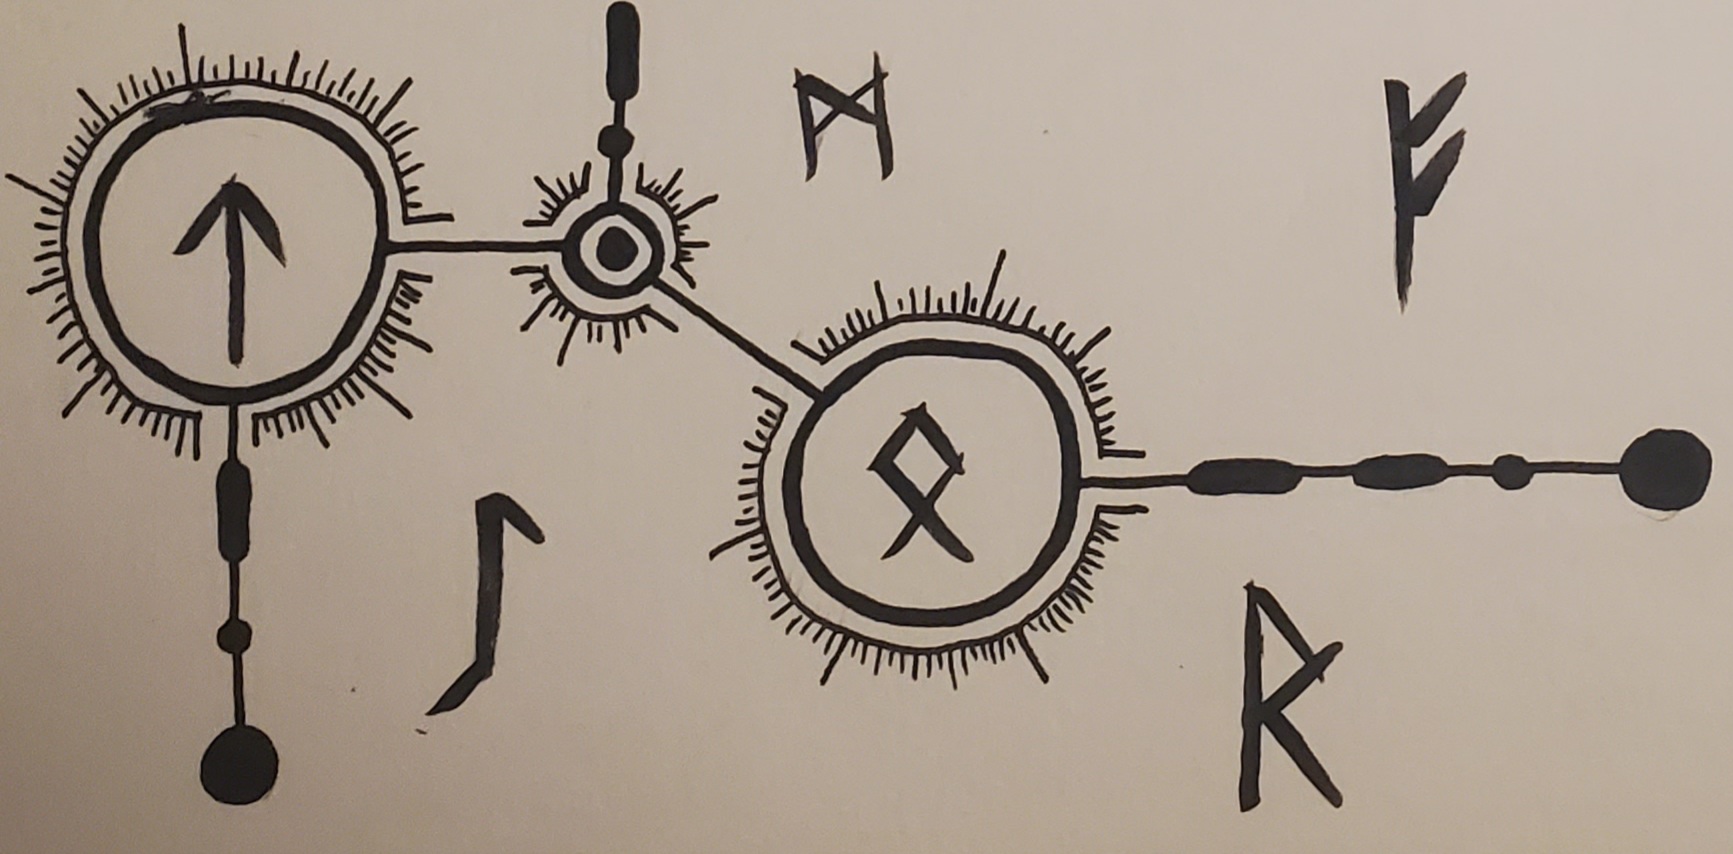 ᛏ ᛗ ᚠ
ᛟ
ᛇ ᚱ